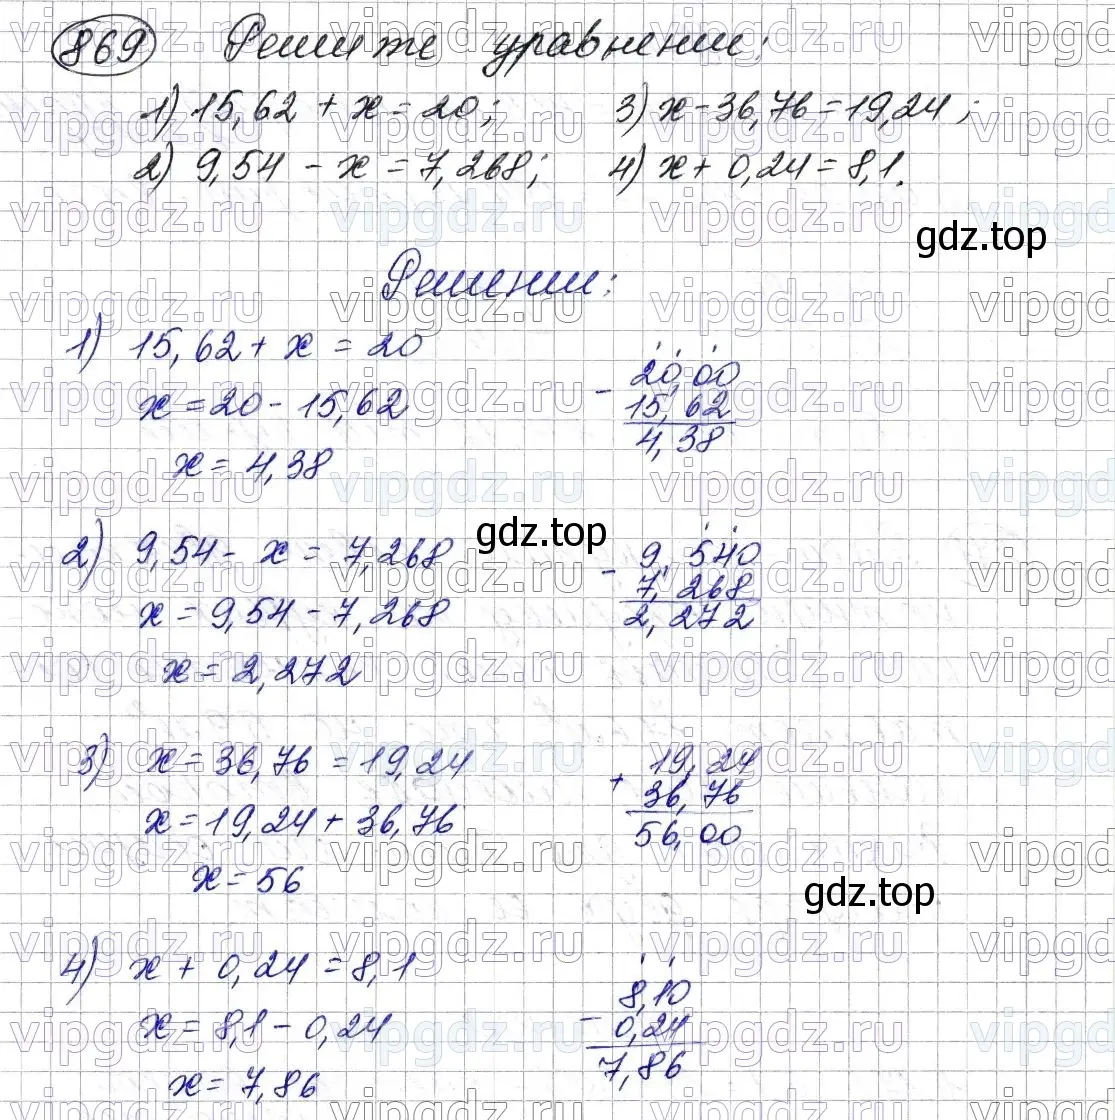 869 Решите уравнения:
1) 15,62 + x = 20; 3) x - 36,76 = 19,24;
2) 9,54 - x = 7,268; 4) x + 0,24 = 8,1.
gdz.top
Решении:
1) 15,62 + x = 20
x = 20 - 15,62
x = 4,38
- 20,00
15,62
4,38
gdz.top
2) 9,54 - x = 7,268
x = 9,54 - 7,268
x = 2,272
- 9,540
7,268
2,272
3) x = 36,76 = 19,24
x = 19,24 + 36,76
x = 56
+ 19,24
36,76
56,00
gdz.top
4) x + 0,24 = 8,1
x = 8,1 - 0,24
x = 7,86
- 8,10
0,24
7,86
vipgdz.ru